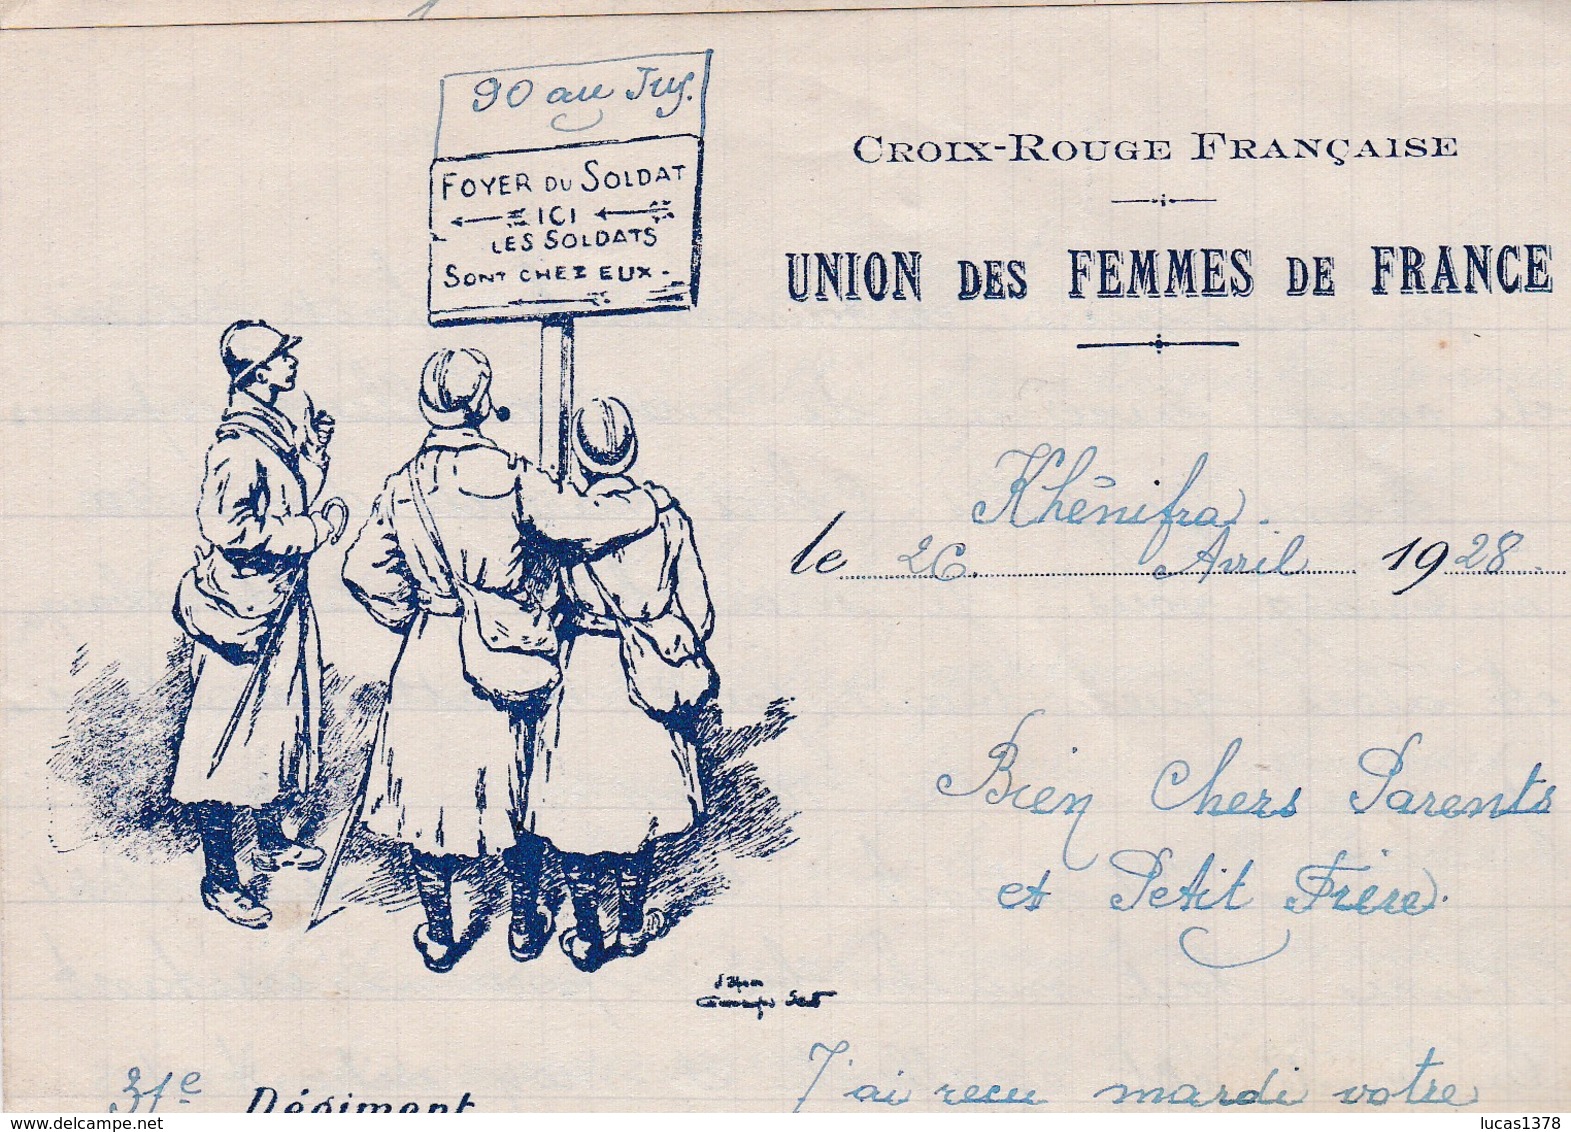 90 au Jus.
FOYER DU SOLDAT
ICI
LES SOLDATS
SONT CHEZ EUX.
CROIX-ROUGE FRANÇAISE
UNION DES FEMMES DE FRANCE
Khénifra.
le 26 Avril 1928.
Bien Chers Parents
et Petit Frère.
31e Régiment
J'ai recu mardi votre
lucas1378
delcampe.net